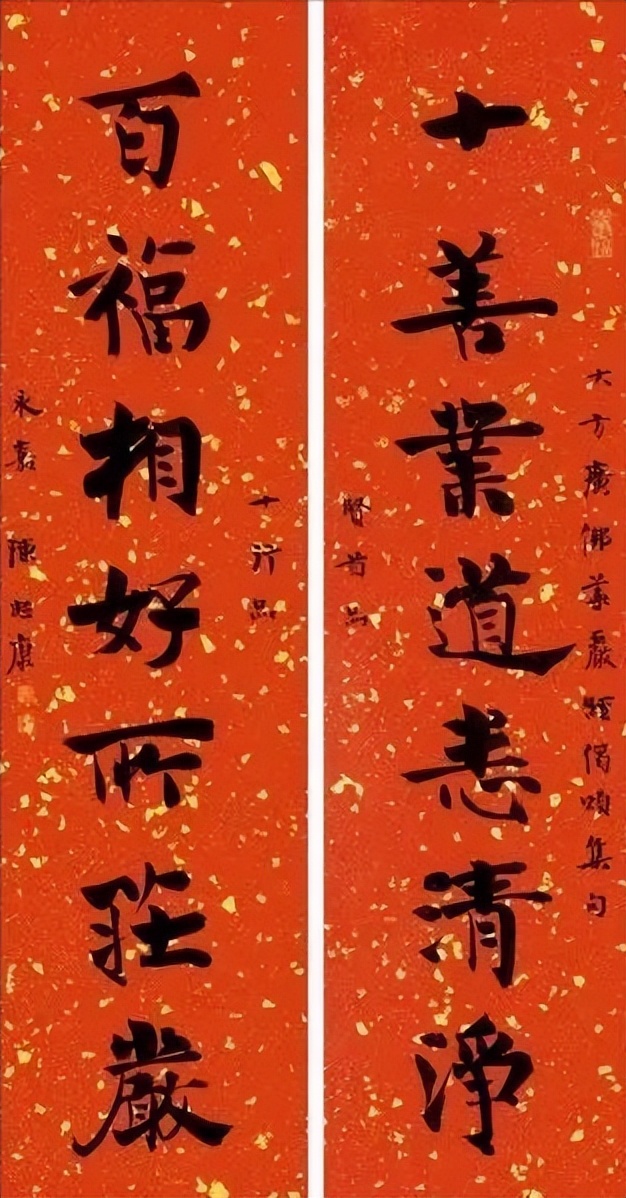 大方廣佛華嚴經偈頌集句
十善業道悉清淨
賢首品
十行品
百福相好所莊嚴
永嘉陳忠康